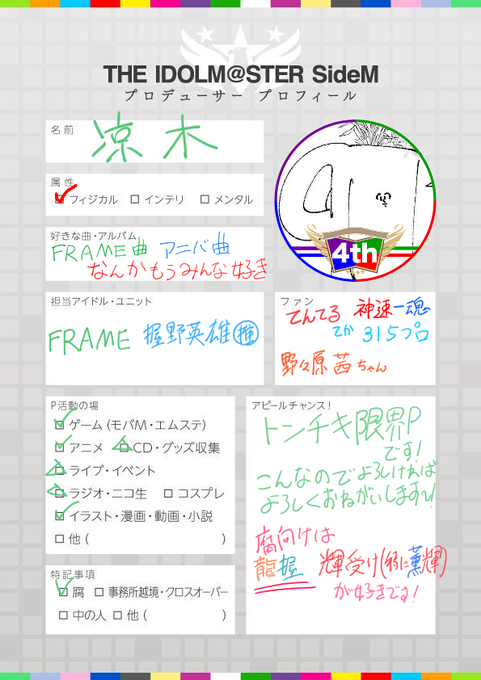 THE IDOLM@STER SideM
プロデューサー プロフィール
名前
涼木
属性
フィジカル インテリ メンタル
好きな曲・アルバム
FRAME曲 アニバ曲
なんかもうみんな好き
4th
担当アイドル・ユニット
FRAME 握野英雄推
ファン
てんてる 神速一魂
てか 315プロ
野々原茜ちゃん
P活動の場
ゲーム(モバM・エムステ)
アニメ CD・グッズ収集
ライブ・イベント
ラジオ・ニコ生 コスプレ
イラスト・漫画・動画・小説
他( )
特記事項
腐 事務所越境・クロスオーバー
中の人 他( )
アピールチャンス!
トンチキ限界P
です!
こんなのでよろしければ
よろしくおねがいします!
腐向けは
龍握 輝受け(特に薫輝)
が好きです!